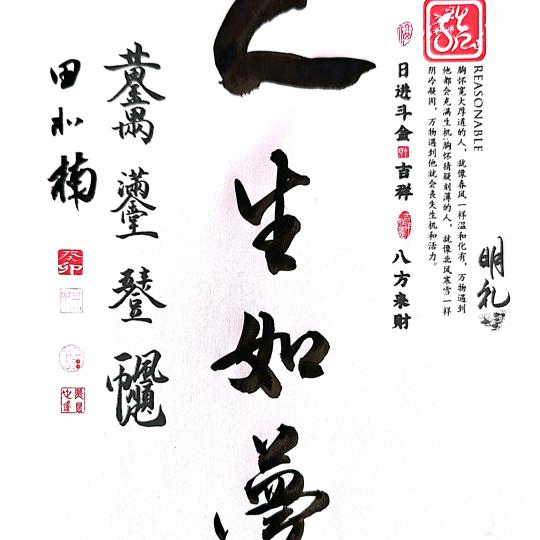 明礼
REASONABLE
胸怀宽大厚道的人，就像春风一样温和化有，万物遇到
他都会充满生机;胸怀猜疑刻薄的人，就像北风寒雪一样
阴冷凝固，万物遇到他就会丧失生机和活力。
日进斗金 吉祥 八方来财
人生如梦
田 楠
癸卯